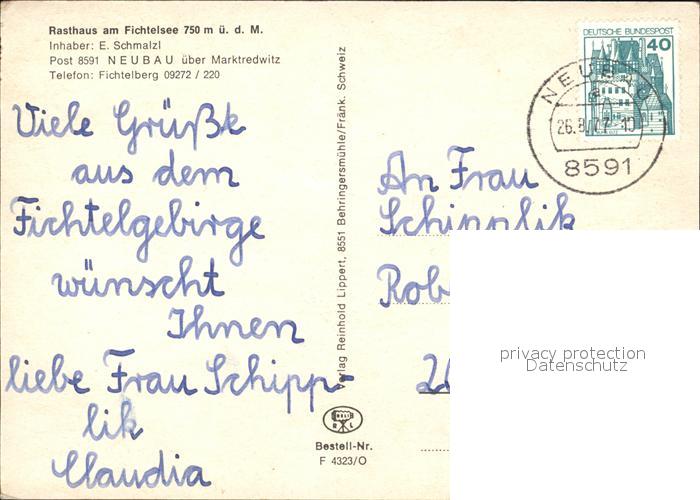 Rasthaus am Fichtelsee 750 m ü. d. M.
Inhaber: E. Schmalzl
Post 8591 NEUBAU über Marktredwitz
Telefon: Fichtelberg 09272 / 220
Viele Grüße
aus dem
Fichtelgebirge
wünscht
Ihnen
liebe Frau Schipp-
lik
Claudia
Verlag Reinhold Lippert, 8551 Behringersmühle/Fränk. Schweiz
R L
Bestell-Nr.
F 4323/O
DEUTSCHE BUNDESPOST
40
NEUBAU
a
26.8.77-10
8591
An Frau
Schipplik
Rob
privacy protection
Datenschutz